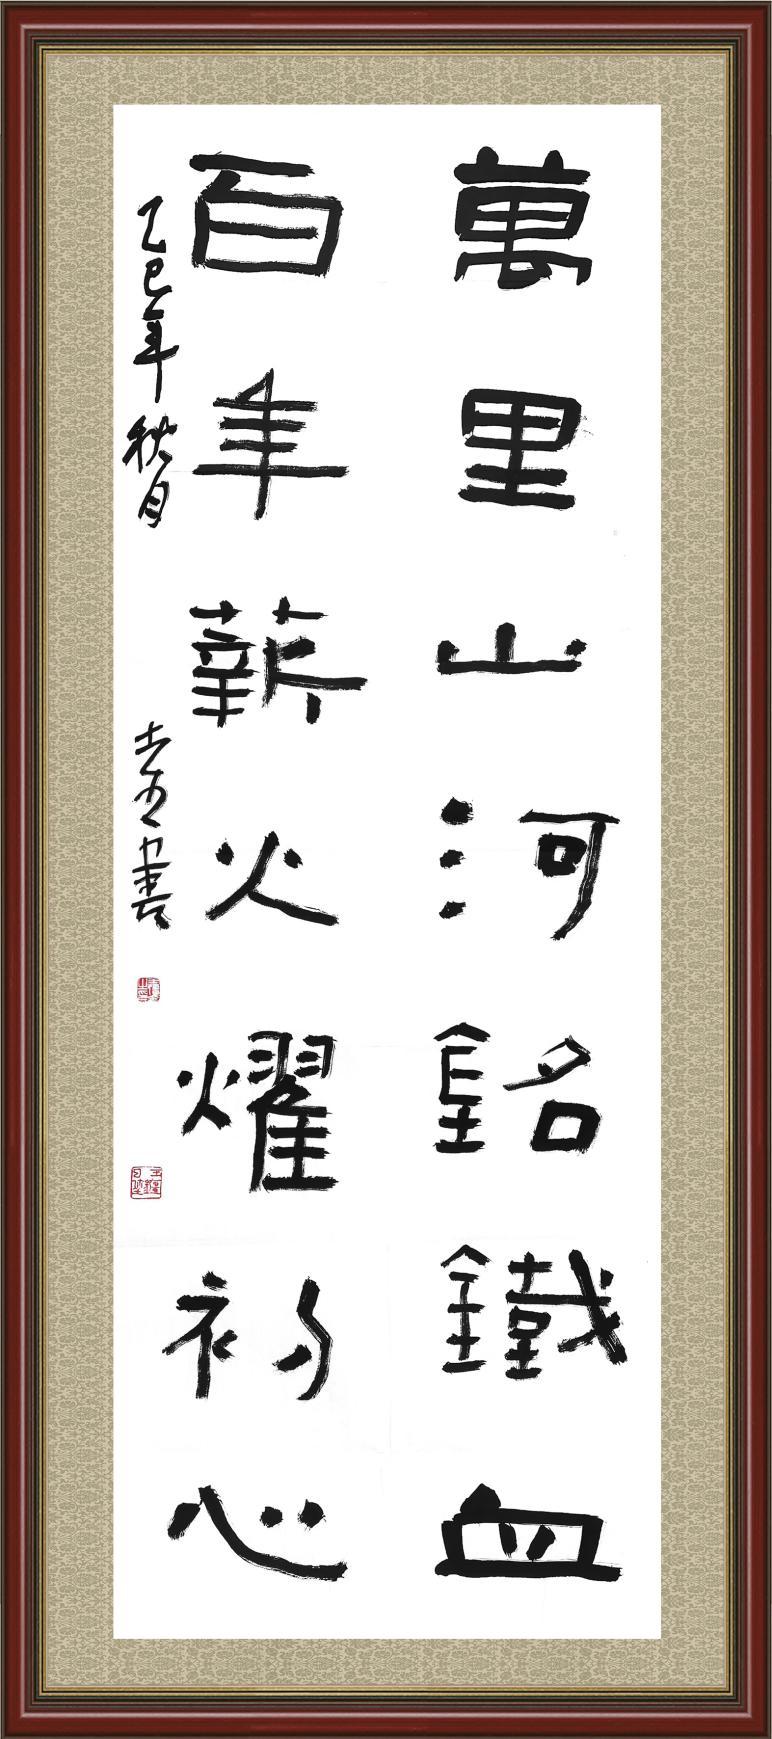 萬里山河銘鐵血
百年薪火耀初心
乙巳年秋月
書